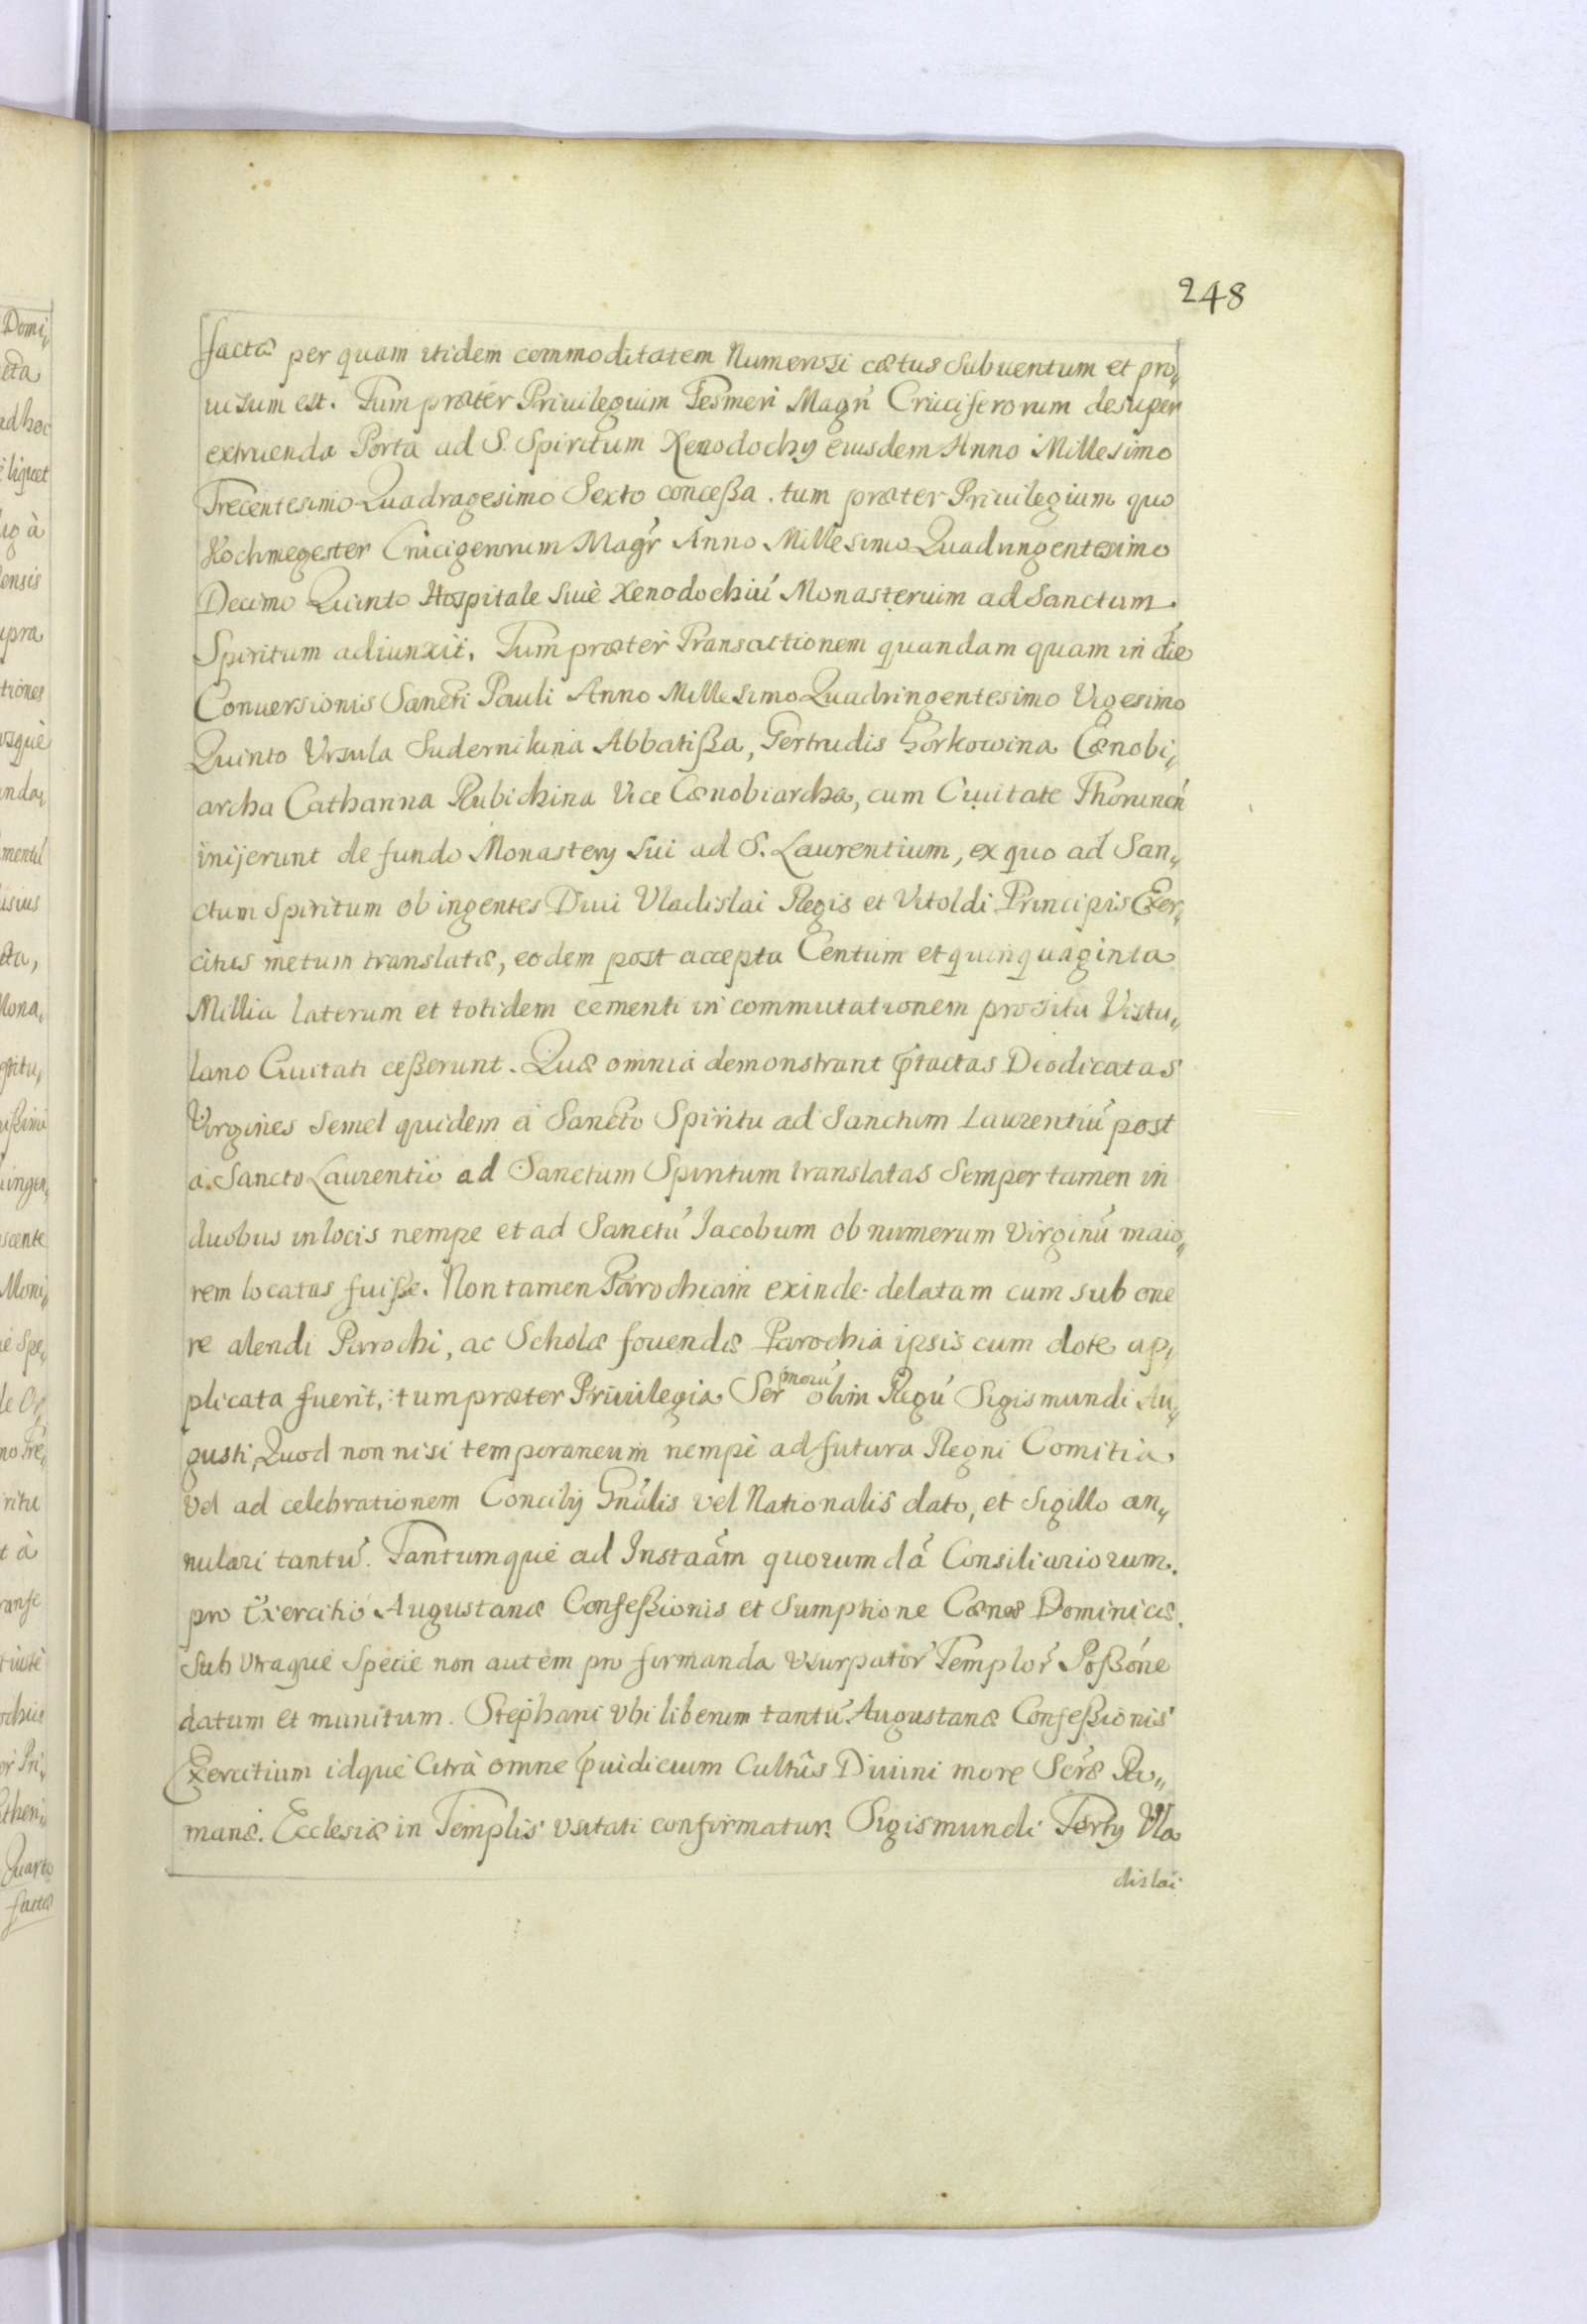 248
factæ per quam itidem commoditatem Numerosi cætus subuentum et pro„
uisum est. Tum præter Priuilegium Tesmeri Magri Cruciferorum desuper
extruenda Porta ad S. Spiritum Xenodochy eiusdem Anno Millesimo
Trecentesimo Quadragesimo Sexto conceßa. tum præter Priuilegium quo
Hochmegester Crucigerorum Magr Anno Millesimo Quadringentesimo
Decimo Quinto Hospitale siue Xenodochiú Monasterium ad Sanctum.
Spiritum adiunxit. Tum præter Transactionem quandam quam in die
Conuersionis Sancti Pauli Anno Millesimo Quadringentesimo Vigesimo
Quinto Vrsula Suderniluna Abbatißa, Gertrudis Gorkowina Cænobi„
archa Catharina Rubichina Vice Cænobiarcha, cum Ciuitate Thorunen
inijerunt de fundo Monastery sui ad S. Laurentium, ex quo ad San„
ctum Spiritum ob ingentes Diui Vladislai Regis et Vitoldi Principis Exer„
citus metum translatæ, eodem post accepta Centum et quinquaginta
Millia laterum et totidem cementi in commutationem pro situ Vistu„
lano Ciuitati ceßerunt. Quæ omnia demonstrant ꝑtactas Deodicatas
Virgines semel quidem à Sancto Spiritu ad Sanctum Laurentiú post
a. Sancto Laurentio ad Sanctum Spiritum translatas semper tamen in
duobus in locis nempe et ad Sanctú Jacobum ob numerum Virginú maio„
rem locatas fuiße. Non tamen Parochiam exinde delatam cum sub one
re alendi Parochi, ac Scholæ fouendæ Parochia ipsis cum dote ap„
plicata fuerit, tum præter Priuilegia Ser morú olim Regú Sigismundi Au„
gusti, Quod non nisi temporaneum nempè ad futura Regni Comitia,
vel ad celebrationem Concilij Gnålis vel Nationalis dato, et sigillo an„
nulari tantú. Tantumque ad Instaãm quorumdã Consiliariorum.
pro Exercitio Augustanæ Confeßionis et sumptione Cænæ Dominicæ.
sub vtraque specie non autem pro firmanda vsurpator Templor Poßóne
datum et munitum. Stephani vbi liberum tantú Augustanæ Confeßionis
Exercitium idque citrà omne ꝑiudicium Cultûs Diuini more Scræ Ro„
manæ. Ecclesiæ in Templis vsitati confirmatur. Sigismundi Terty Vla
dislai